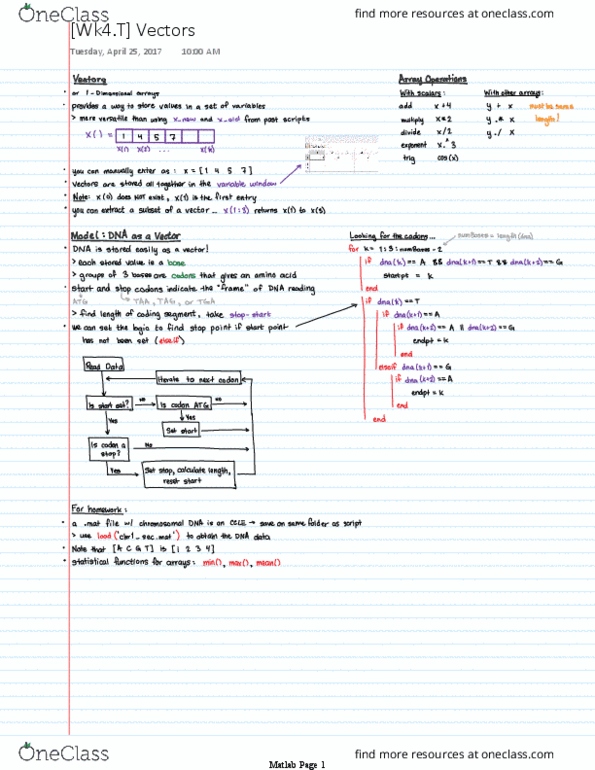 OneClass
find more resources at oneclass.com
[Wk4.T] Vectors
Tuesday, April 25, 2017 10:00 AM
Vectors
• or 1-Dimensional arrays
• provides a way to store values in a set of variables
> more versatile than using x_new and x_old from past scripts
x( ) = 1 4 5 7
x(1) x(2) ... x(k)
• you can manually enter as : x = [1 4 5 7]
• Vectors are stored all together in the variable window
• Note: x(0) does NOT exist, x(1) is the first entry
• you can extract a subset of a vector... x(1:3) returns x(1) to x(3)
Array Operations
With scalars: With other arrays:
add x+4 y + x must be same
multiply x*2 y .* x length!
divide x/2 y ./ x
exponent x.^3
trig cos(x)
Model: DNA as a Vector
• DNA is stored easily as a vector!
> each stored value is a base
> groups of 3 bases are codons that gives an amino acid
• start and stop codons indicate the "frame" of DNA reading
ATG TAA, TAG, or TGA
> find length of coding segment, take stop-start
• we can set the logic to find stop point if start point
has not been set (else if)
Read Data
Iterate to next codon
Is start set? no Is codon ATG no
Yes Yes
Set start
Is codon a stop? No
Yes Set stop, calculate length, reset start
Looking for the codons... numBases = length(dna)
for k = 1:3:numBases-2
if dna(k) == A && dna(k+1)==T && dna(k+2)==G
startpt = k
end
if dna(k)==T
if dna(k+1)==A
if dna(k+2)==A || dna(k+2)==G
endpt = k
end
elseif dna(k+1)==G
if dna(k+2)==A
endpt = k
end
end
For homework:
• a .mat file w/ chromosomal DNA is on CCLE → save on same folder as script
> use load('chr1_sec.mat') to obtain the DNA data
• Note that [A C G T] is [1 2 3 4]
• statistical functions for arrays: min(), max(), mean()
OneClass
find more resources at oneclass.com
Matlab Page 1